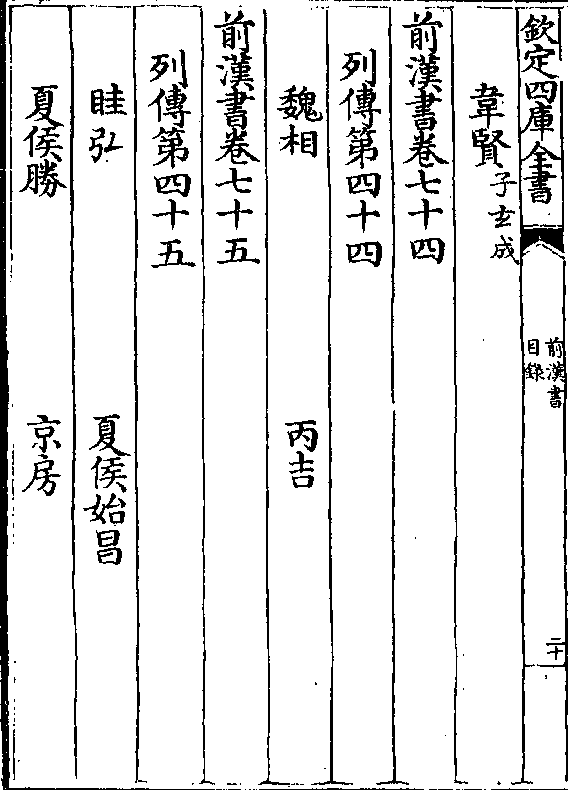 欽定四庫全書
前漢書
目錄
二十
韋賢 子玄成
前漢書卷七十四
列傳第四十四
魏相 丙吉
前漢書卷七十五
列傳第四十五
眭弘 夏侯始昌
夏侯勝 京房